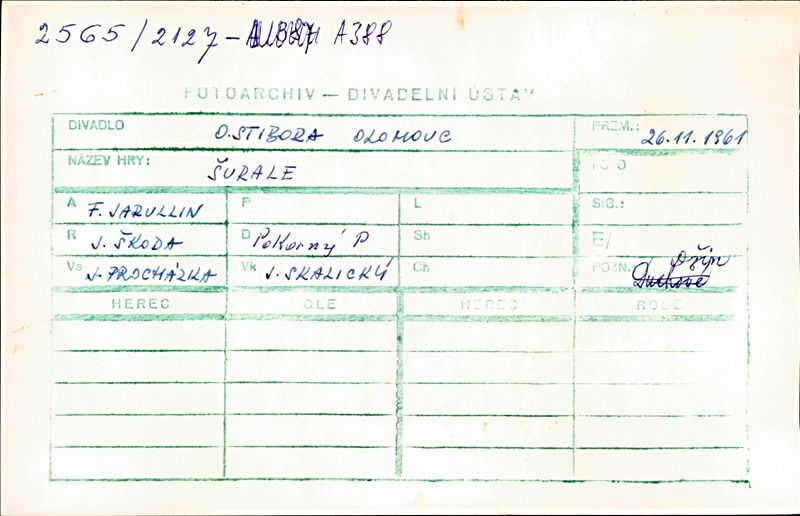 2565/2127- A388
FOTOARCHIV — DIVADELNÍ ÚSTAV
DIVADLO O.STIBORA OLOMOUC PREM.: 26.11.1961
NÁZEV HRY: ŠURALE FOTO
A F. JARULLIN P L SIG.:
R J. ŠKODA D Pokorný P Sh E/
Vs J. PROCHÁZKA Vk J. SKALICKÝ Ch POZN.
HEREC OLE HEREC ROLE